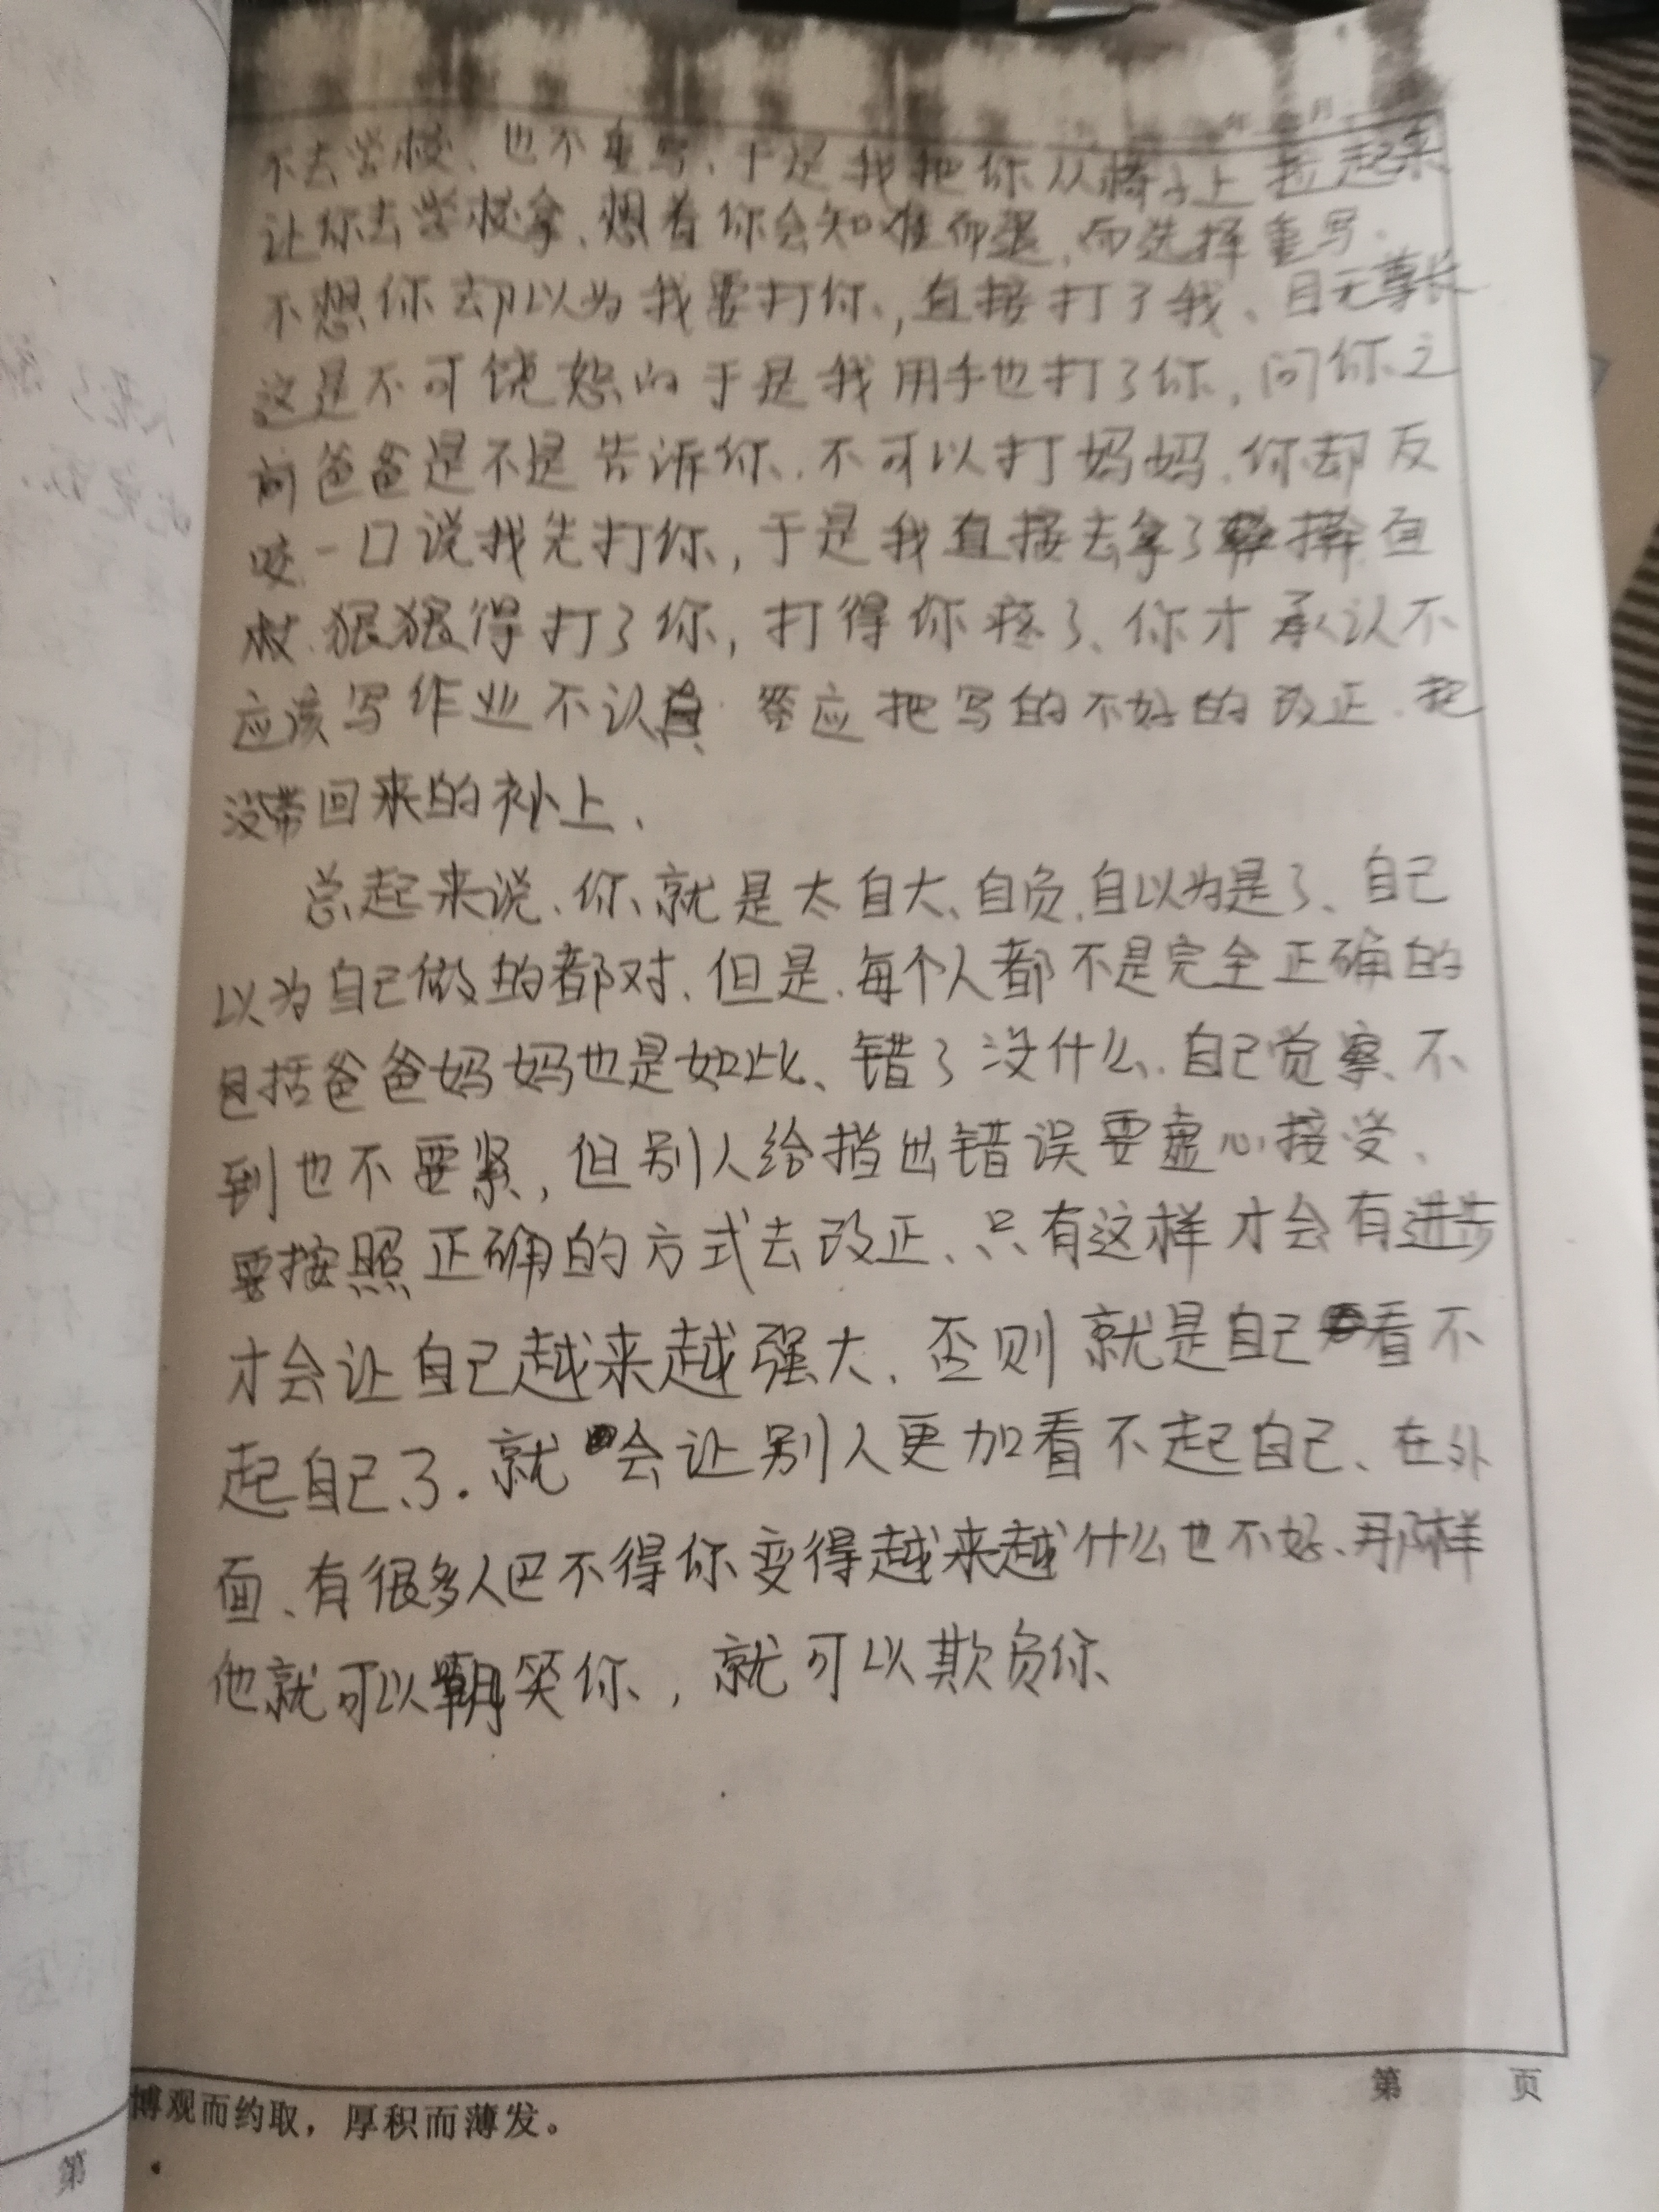 不去学校、也不重写、于是我把你从椅子上拉起来
让你去学校拿、想着你会知难而退、而选择重写.
不想你却以为我要打你，直接打了我、目无尊长
这是不可饶恕的于是我用手也打了你，问你之
前爸爸是不是告诉你.不可以打妈妈.你却反
咬一口说我先打你，于是我直接去拿了擀面
杖.狠狠得打了你，打得你疼了、你才承认不
应该写作业不认真 答应把写的不好的改正.把
没带回来的补上、
总起来说、你就是太自大、自负、自以为是了、自己
以为自己做的都对、但是.每个人都不是完全正确的
包括爸爸妈妈也是如此、错了没什么.自己觉察不
到也不要紧，但别人给指出错误要虚心接受、
要按照正确的方式去改正、只有这样才会有进步
才会让自己越来越强大、否则就是自己看不
起自己了.就会让别人更加看不起自己、在外
面、有很多人巴不得你变得越来越什么也不好、那样
他就可以朝笑你，就可以欺负你、
第 页
博观而约取，厚积而薄发。
第